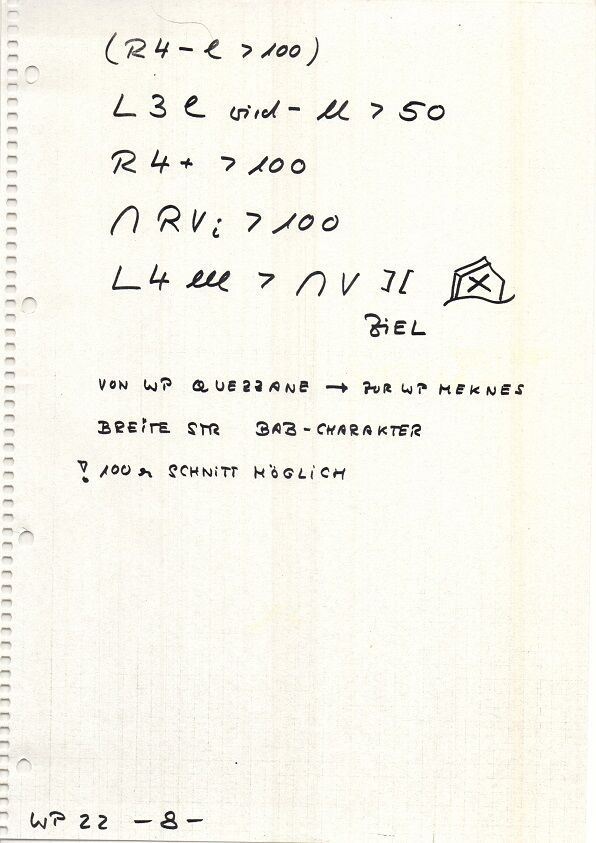 (R4-l > 100)
L3 l wird - ll > 50
R4+ > 100
∩ RVi > 100
L4 lll > ∩ V ][
ZIEL
VON WP QUEZZANE → ZUR WP MEKNES
BREITE STR BAB-CHARAKTER
! 100er SCHNITT MÖGLICH
WP 22 -8-